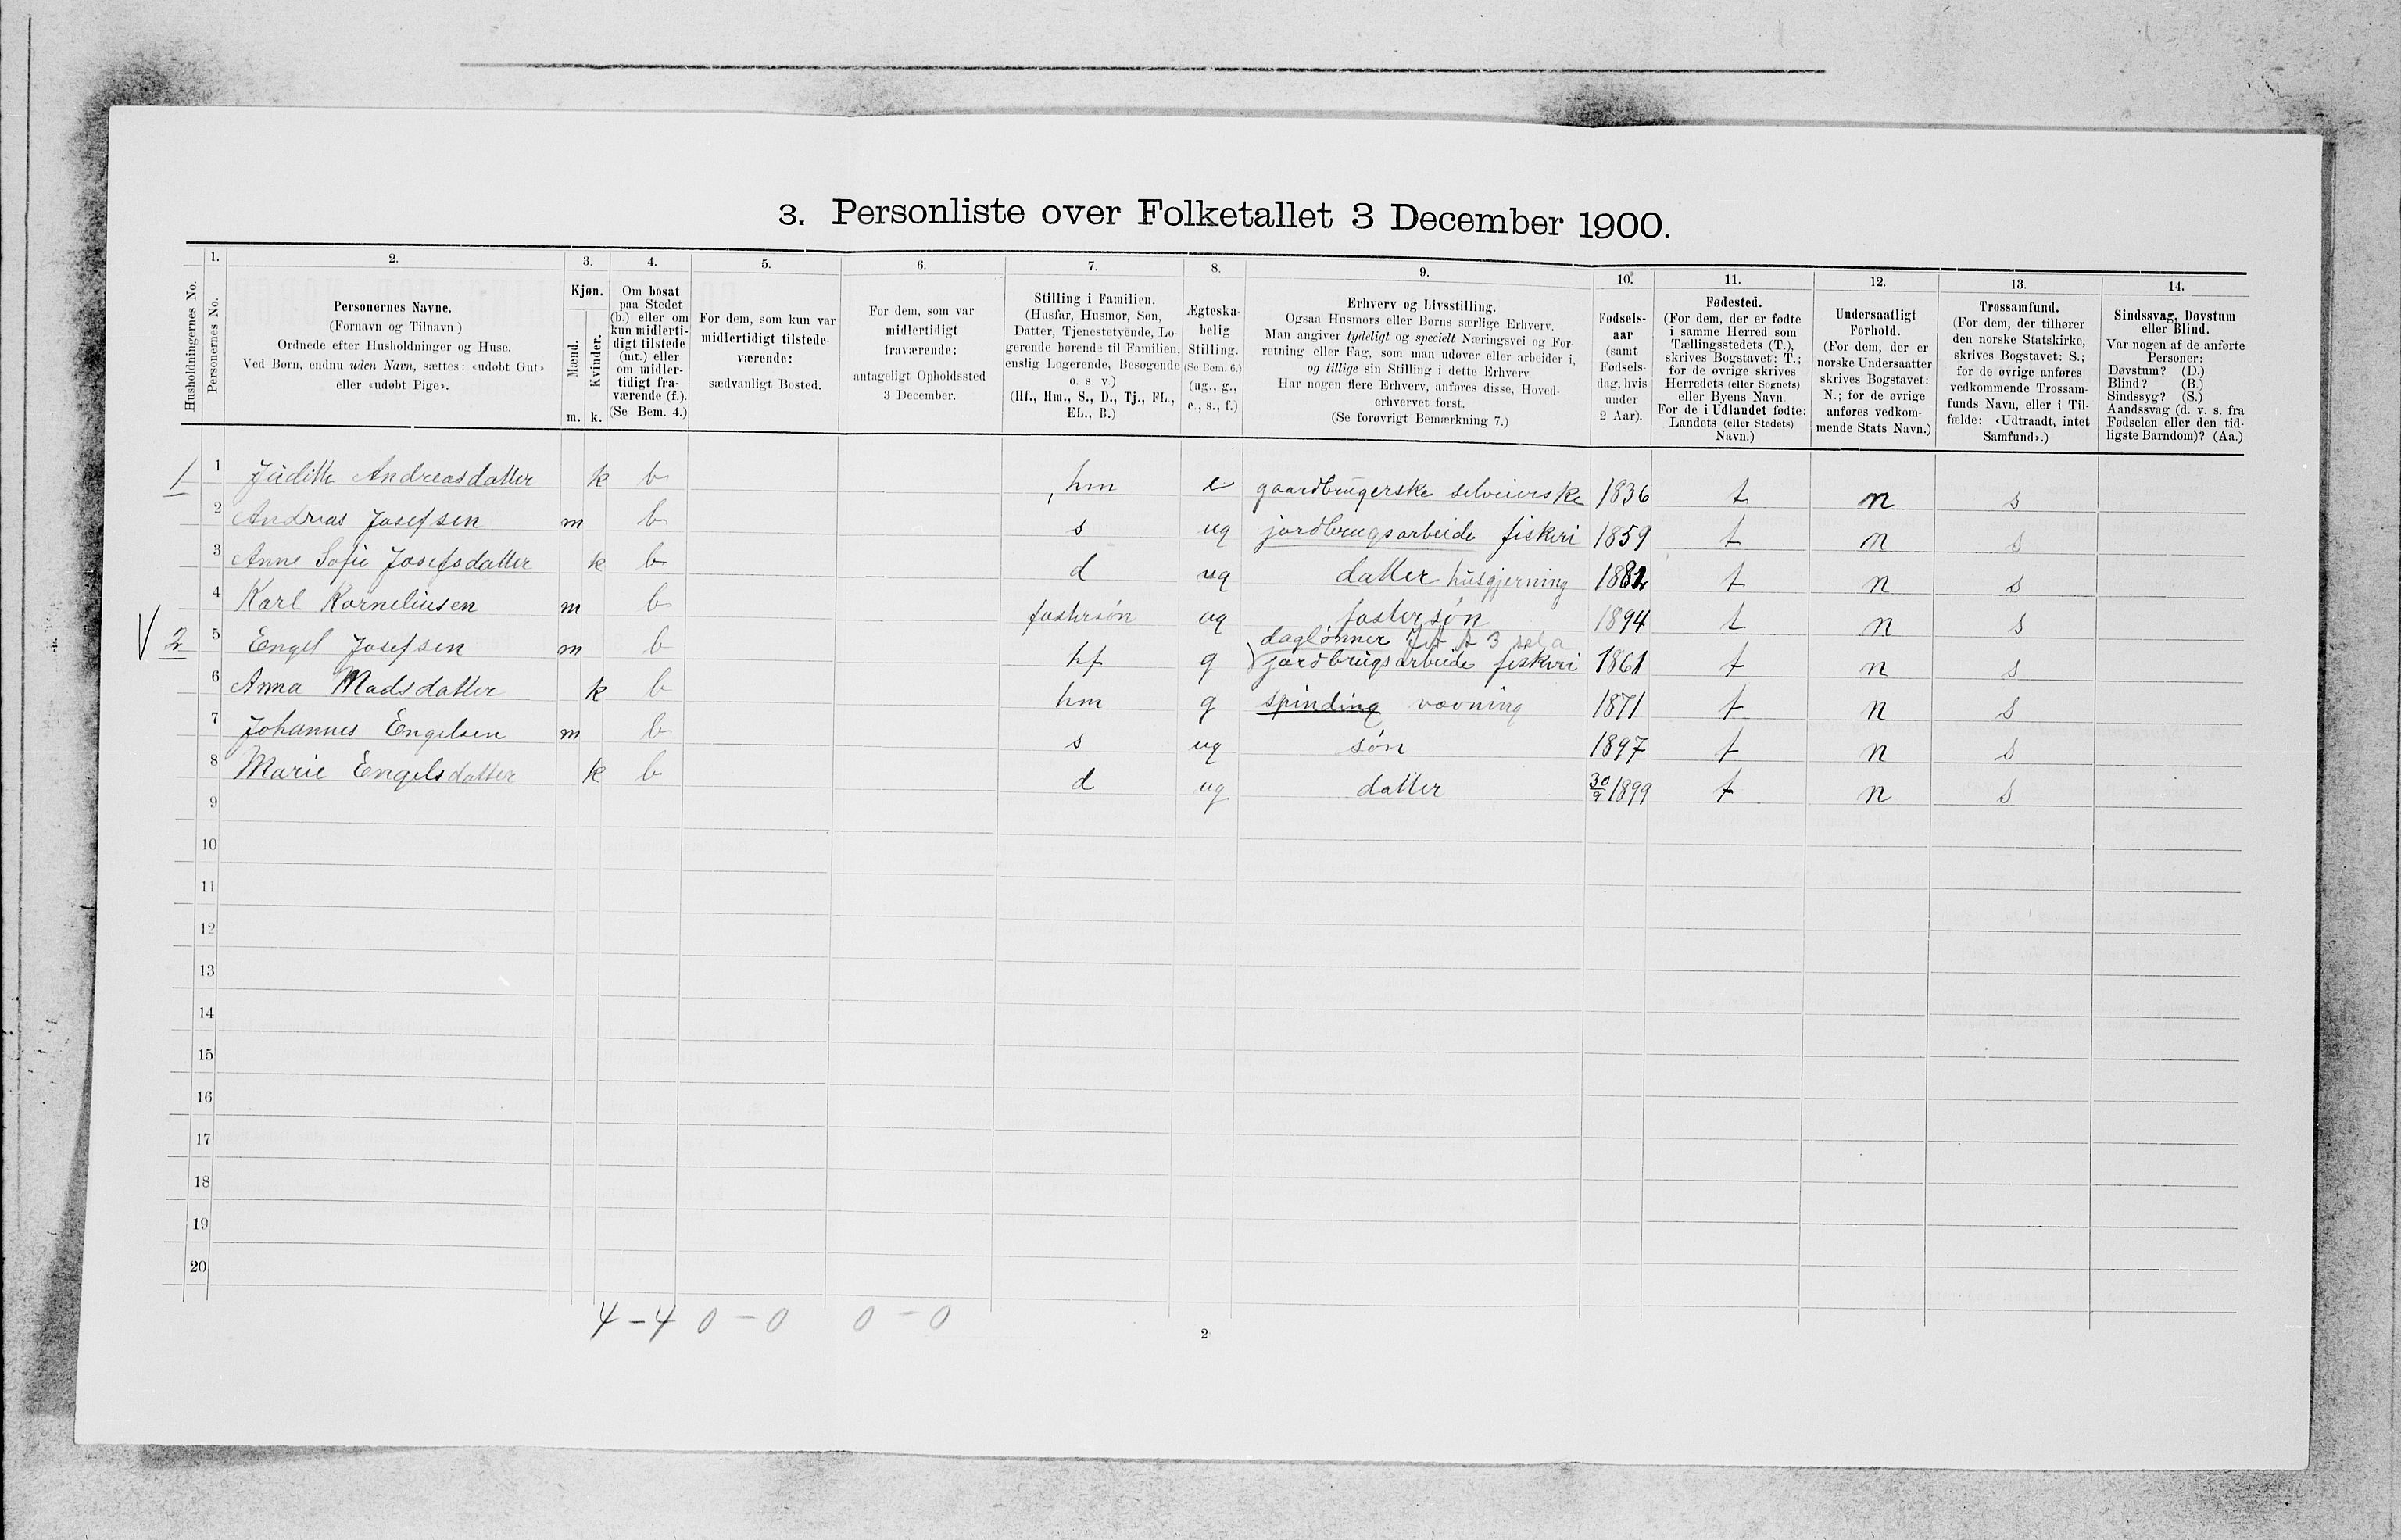 3. Personliste over Folketallet 3 December 1900.
1. 2. 3. 4. 5. 6. 7. 8. 9. 10. 11. 12. 13. 14.
Husholdningernes No.
Personernes No.
Personernes Navne.
(Fornavn og Tilnavn)
Ordnede efter Husholdninger og Huse.
Ved Børn, endnu uden Navn, sættes: «udøbt Gut»
eller «udøbt Pige».
Kjøn.
Mænd.
Kvinder.
m. k.
Om bosat
paa Stedet
(b.) eller om
kun midlerti-
digt tilstede
(mt.) eller
om midler-
tidigt fra-
værende (f.).
(Se Bem. 4.)
For dem, som kun var
midlertidigt tilstede-
værende:
sædvanligt Bosted.
For dem, som var
midlertidigt
fraværende:
antageligt Opholdssted
3 December.
Stilling i Familien.
(Husfar, Husmor, Søn,
Datter, Tjenestetyende, Lo-
gerende hørende til Familien,
enslig Logerende, Besøgende
o. s v.)
(Hf., Hm., S., D., Tj., FL.,
EL., B.)
Ægteska-
belig
Stilling.
(Se Bem. 6.)
(ug., g.,
e., s., f.)
Erhverv og Livsstilling.
Ogsaa Husmors eller Børns særlige Erhverv.
Man angiver tydeligt og specielt Næringsvei og For-
retning eller Fag, som man udøver eller arbeider i,
og tillige sin Stilling i dette Erhverv
Har nogen flere Erhverv, anføres disse, Hoved-
erhvervet først.
(Se forøvrigt Bemærkning 7.)
Fødsels-
aar
(samt
Fødsels-
dag, hvis
under
2 Aar).
Fødested.
(For dem, der er fødte
i samme Herred som
Tællingsstedets (T.),
skrives Bogstavet: T.;
for de øvrige skrives
Herredets (eller Sognets)
eller Byens Navn.
For de i Udlandet fødte:
Landets (eller Stedets)
Navn.)
Undersaatligt
Forhold.
(For dem, der er
norske Undersaatter
skrives Bogstavet:
N.; for de øvrige
anføres vedkom-
mende Stats Navn.)
Trossamfund.
(For dem, der tilhører
den norske Statskirke,
skrives Bogstavet: S.;
for de øvrige anføres
vedkommende Trossam-
funds Navn, eller i Til-
fælde: «Udtraadt, intet
Samfund».)
Sindssvag, Døvstum
eller Blind.
Var nogen af de anførte
Personer:
Døvstum? (D.)
Blind? (B.)
Sindssyg? (S.)
Aandssvag (d. v. s. fra
Fødselen eller den tid-
ligste Barndom)? (Aa.)
1 1 Judithe Andreasdatter k b hm e gaardbrugerske selveierske 1836 t n s
2 Andreas Josefsen m b s ug jordbrugsarbeide fiskeri 1859 t n s
3 Anne Sofie Josefsdatter k b d ug datter husgjerning 1882 t n s
4 Karl Korneliusen m b fostersøn ug fostersøn 1894 t n s
daglønner
V 2 5 Engel Josefsen m b hf g jordbrugsarbeide fiskeri 1861 t n s
6 Anna Madsdatter k b hm g spinding vævning 1871 t n s
7 Johannes Engelsen m b s ug søn 1897 t n s
8 Marie Engelsdatter k b d ug datter 30/9 1899 t n s
9
10
11
12
13
14
15
16
17
18
19
20
4 - 4 0 - 0 0 - 0
2